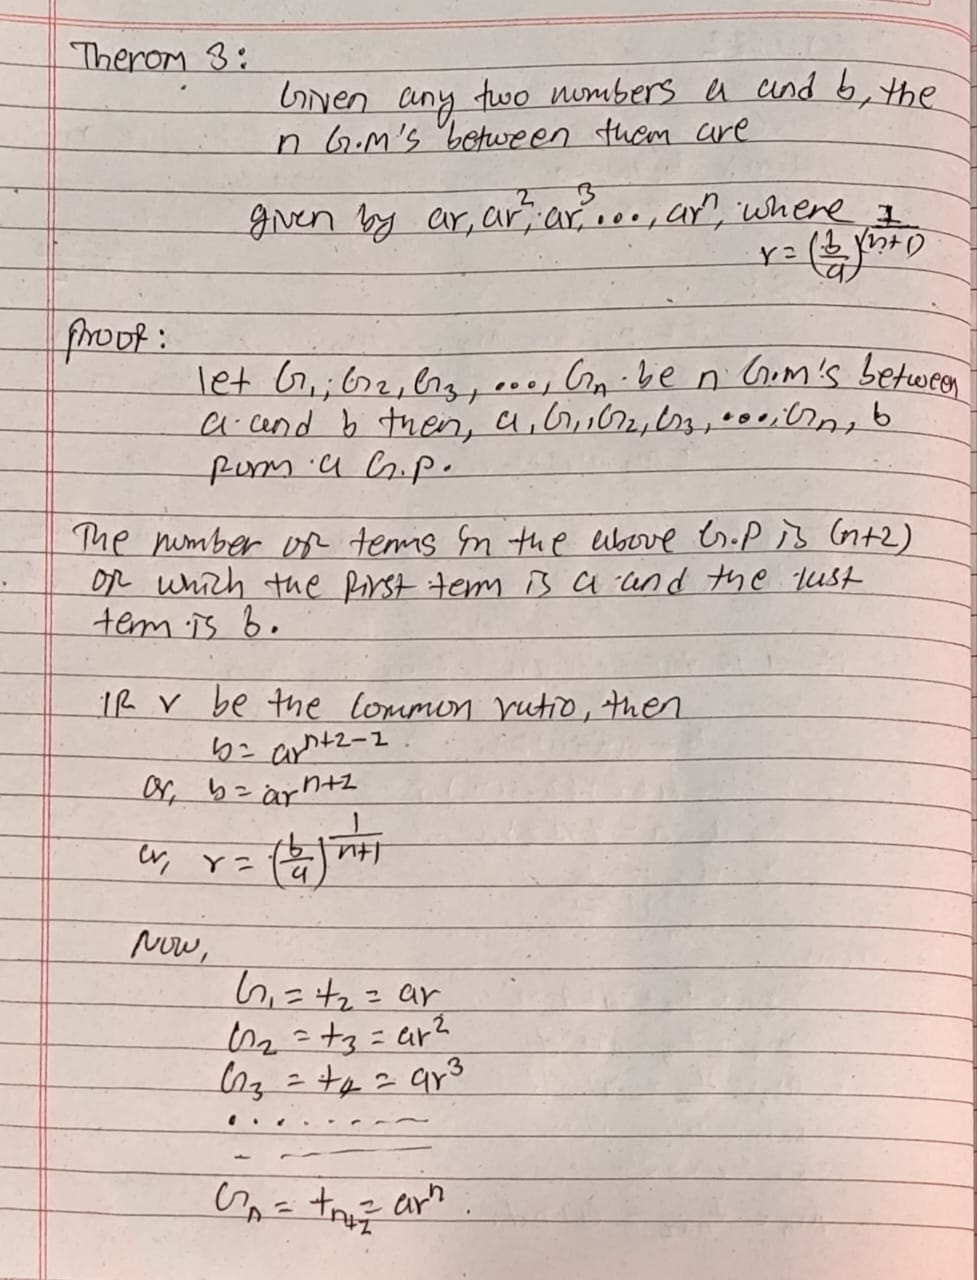 Therom 3:
Given any two numbers a and b, the
n G.M's between them are
given by ar, ar², ar³, ..., arⁿ, where
r = (b/a)^(1/(n+1))
Proof:
let G₁, G₂, G₃, ..., Gₙ be n G.M's between
a and b then, a, G₁, G₂, G₃, ..., Gₙ, b
form a G.P.
The number of terms in the above G.P is (n+2)
of which the first term is a and the last
term is b.
If r be the common ratio, then
b = ar^(n+2-1)
or, b = ar^(n+1)
or, r = (b/a)^(1/(n+1))
Now,
G₁ = t₂ = ar
G₂ = t₃ = ar²
G₃ = t₄ = ar³
Gₙ = tₙ₊₁ = arⁿ.